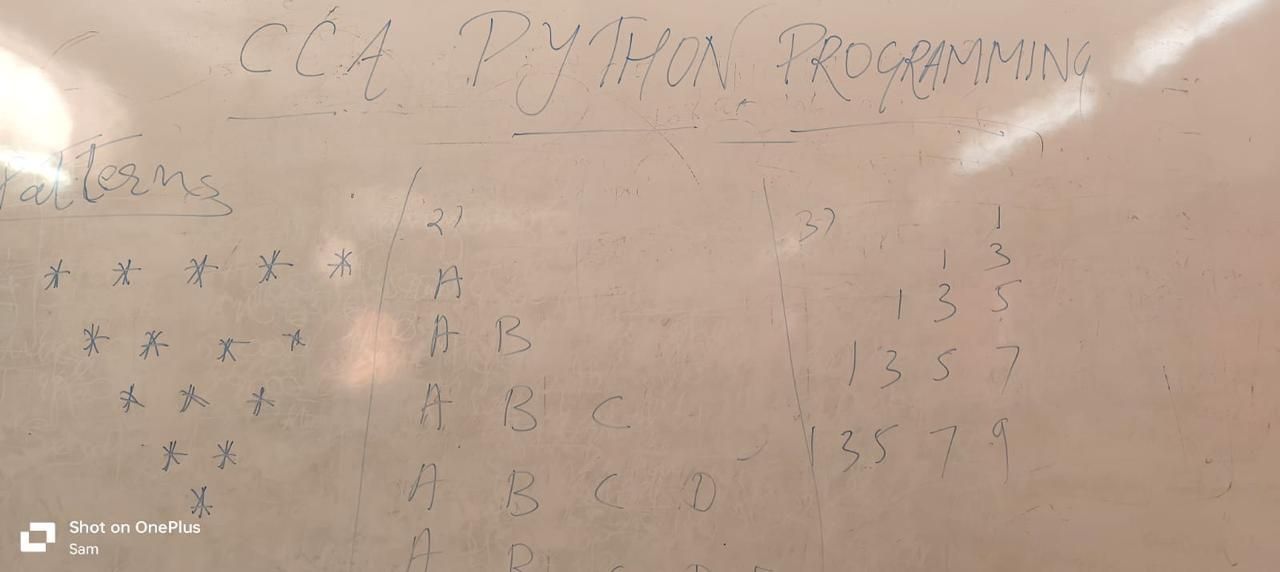 CCA PYTHON PROGRAMMING
Patterns
* * * * *
* * * *
* * *
* *
*
2)
A
A B
A B C
A B C D
A B C D
3)
1
1 3
1 3 5
1 3 5 7
1 3 5 7 9
Shot on OnePlus
Sam